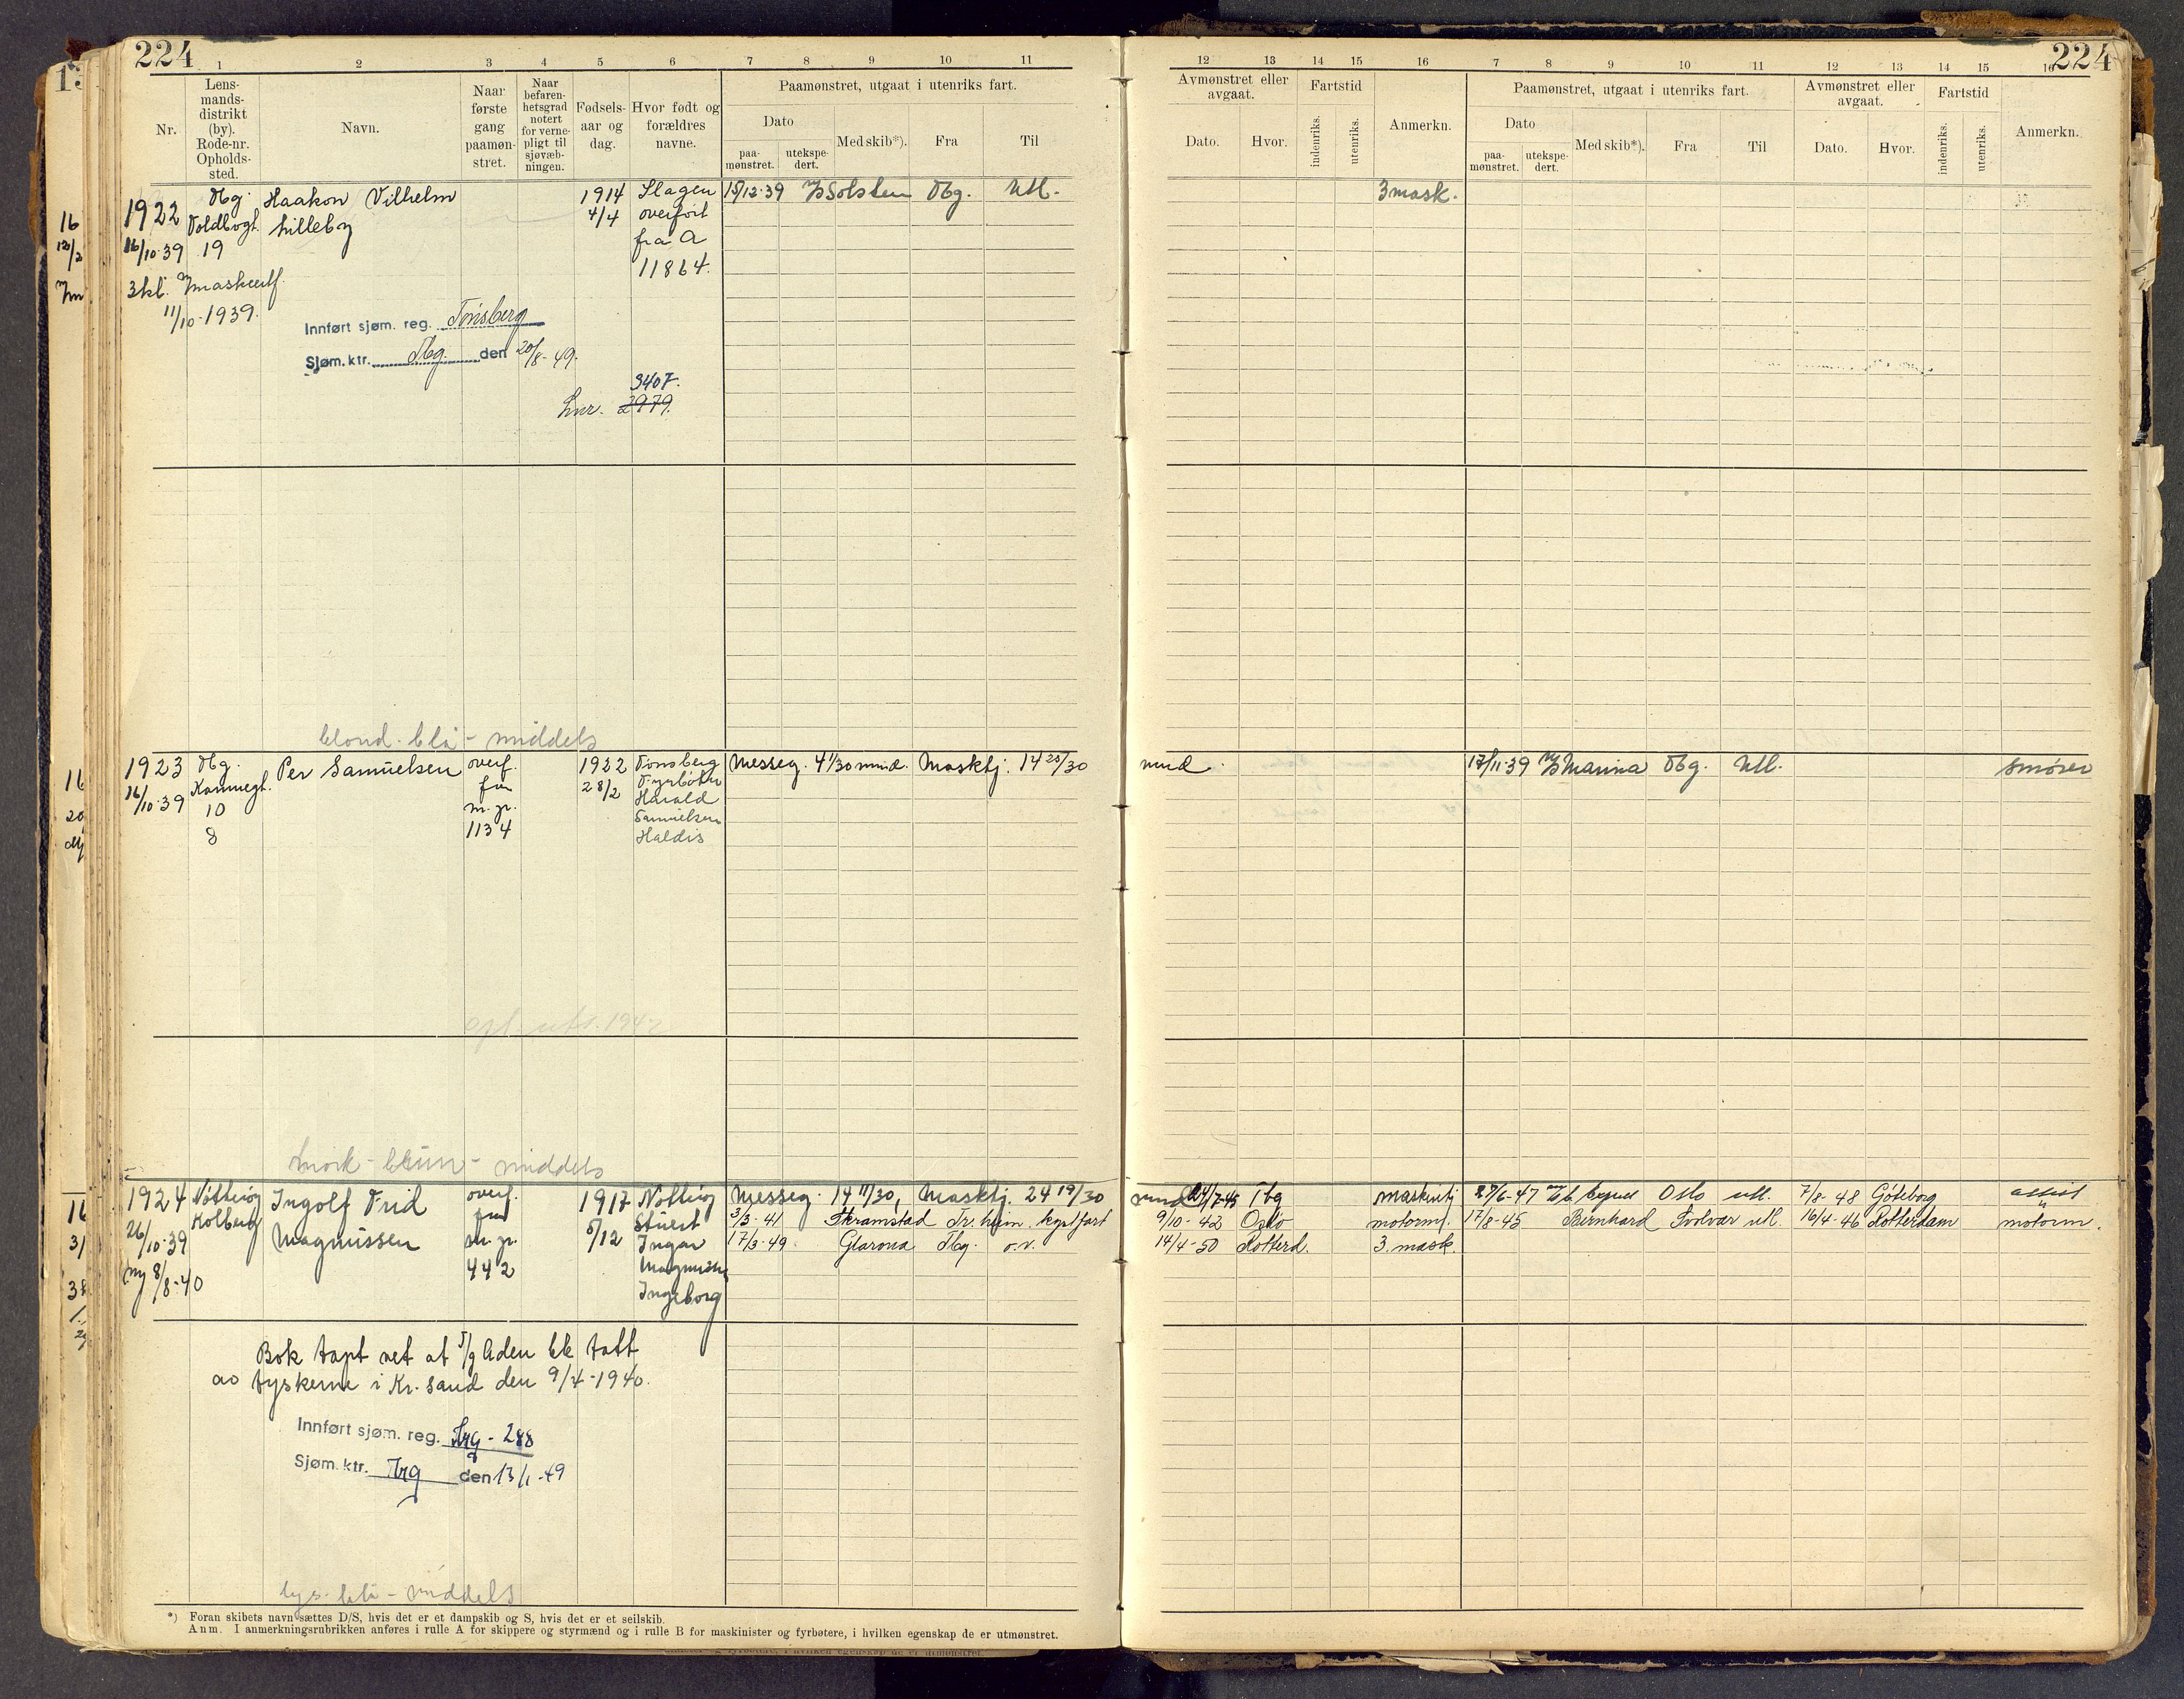 224
1 2 3 4 5 6 7 8 9 10 11
Nr.
Lens-
mands-
distrikt
(by).
Rode-nr.
Opholds-
sted.
Navn.
Naar
første
gang
paamøn-
stret.
Naar
befaren-
hetsgrad
notert
for verne-
pligt til
sjøvæb-
ningen.
Fødsels-
aar og
dag.
Hvor født og
forældres
navne.
Paamønstret, utgaat i utenriks fart.
Dato
paa-
mønstret.
utekspe-
dert.
Med skib*).
Fra
Til
1922
16/10-39
3kl.
11/10-1939.
Tbg.
19
Haakon Vilhelm
Lilleby
1914
4/4
Slagen
overført
fra A
11864.
15/12-39 M/S Solsten Tbg. Utl.
Innført sjøm. reg. Tønsberg
Sjøm. ktr. Tbg. den 20/8-49.
3407.
Lnr. 2979.
blond - blå - middels
1923
16/10-39
Tbg.
10
8
Per Samuelsen
overf.
fra
m.p.
1134
1922
28/2
Tønsberg
Fyrbøter
Harald
Samuelsen
Haldis
Messeg. 4 1/30 mnd. Maskbj. 14 25/30
mørk - brun - middels
1924
26/10-39
ny 8/8-40
Nøtterøy
Kolberg
Ingolf Frid
Magnussen
overf.
fra
m.p.
442
1917
5/12
Nøtterøy
Stuert
Ingar
Magnussen
Ingeborg
Messeg. 14 11/30, Maskbj. 24 19/30
3/3-41 Skramstad Tr.heim. kystfart
17/3-49 Glarona Tbg. o.v.
Bok tapt ved at S/S Aden ble tatt
av tyskerne i Kr.sand den 9/4-1940.
Innført sjøm. reg. Tbg - 288
Sjøm. ktr. Tbg den 13/1-49
lys - blå - middels
*) Foran skibets navn sættes D/S, hvis det er et dampskib og S, hvis det er et seilskib.
Anm. I anmerkningsrubrikken anføres i rulle A for skippere og styrmænd og i rulle B for maskinister og fyrbøtere, i hvilken egenskap de er utmønstret.
224
12 13 14 15 16 7 8 9 10 11 12 13 14 15 16
Avmønstret eller
avgaat.
Dato.
Hvor.
Fartstid
indenriks.
utenriks.
Anmerkn.
Paamønstret, utgaat i utenriks fart.
Dato
paa-
mønstret.
utekspe-
dert.
Med skib*).
Fra
Til
Avmønstret eller
avgaat.
Dato.
Hvor.
Fartstid
indenriks.
utenriks.
Anmerkn.
3 mask.
mnd. 17/11-39 M/S Marina Tbg. Utl. smører
mnd 24/7-45 Tbg 27/6-47 Oslo utl. 7/8-48 Göteborg assist
9/10-42 Oslo motorm. 17/8-45 Bernhard Svolvær utl. 16/4-46 Rotterdam motorm.
14/4-50 Rotterd. 3. mask.